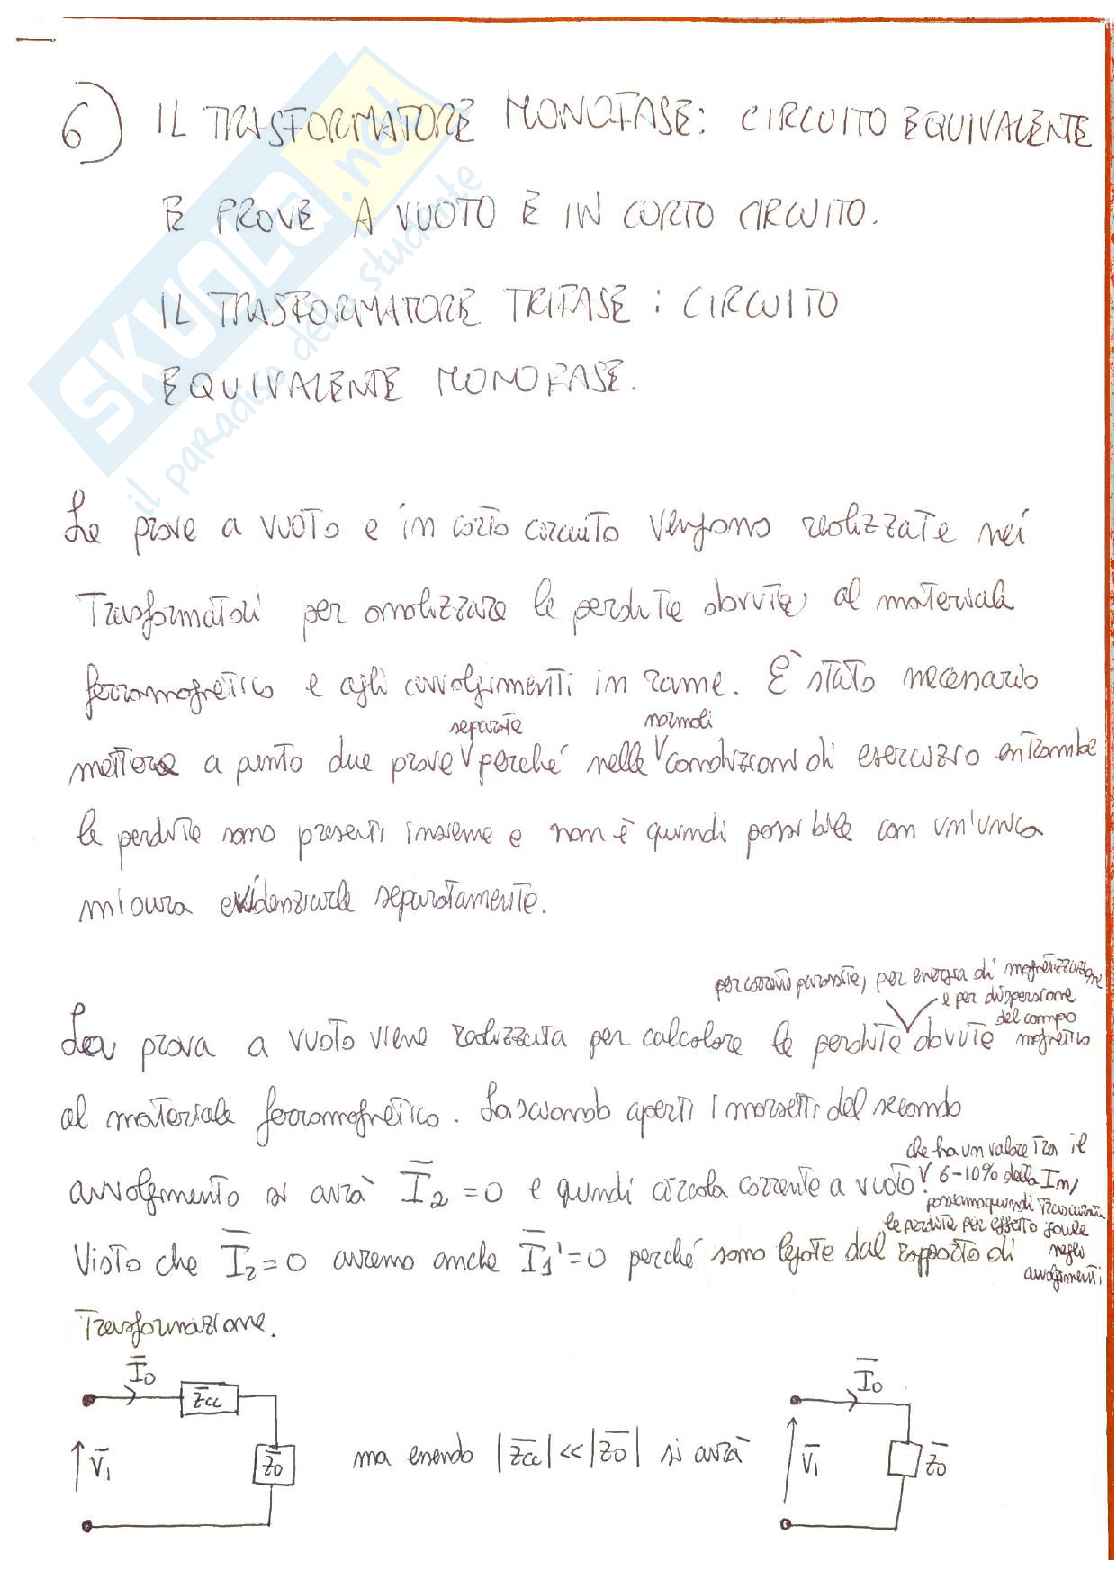 6) IL TRASFORMATORE MONOFASE: CIRCUITO EQUIVALENTE
E PROVE A VUOTO E IN CORTO CIRCUITO.
IL TRASFORMATORE TRIFASE: CIRCUITO
EQUIVALENTE MONOFASE.
SKUOLA.net
il paradiso dello studente
Le prove a vuoto e in corto circuito vengono realizzate nei
Trasformatori per analizzare le perdite dovute, al materiale
ferromagnetico e agli avvolgimenti in rame. È stato necessario
separate normali
mettere a punto due prove V perché nelle V condizioni di esercizio entrambe
le perdite sono presenti insieme e non è quindi possibile con un'unica
misura evidenziarle separatamente.
per correnti parassite, per energia di magnetizzazione
e per dispersione
del campo
La prova a vuoto viene realizzata per calcolare le perdite dovute magnetico
al materiale ferromagnetico. Lasciando aperti i morsetti del secondo
che ha un valore tra il
avvolgimento si avrà I̅₂ = 0 e quindi circola corrente a vuoto. V 6-10% della In,
possiamo quindi trascurare
le perdite per effetto Joule
Visto che I̅₂ = 0 avremo anche I̅₁' = 0 perché sono legate dal rapporto di negli
avvolgimenti
Trasformazione.
I̅₀ Z̅cc
V̅₁ Z̅₀
ma essendo |Z̅cc| << |Z̅₀| si avrà
I̅₀
V̅₁ Z̅₀